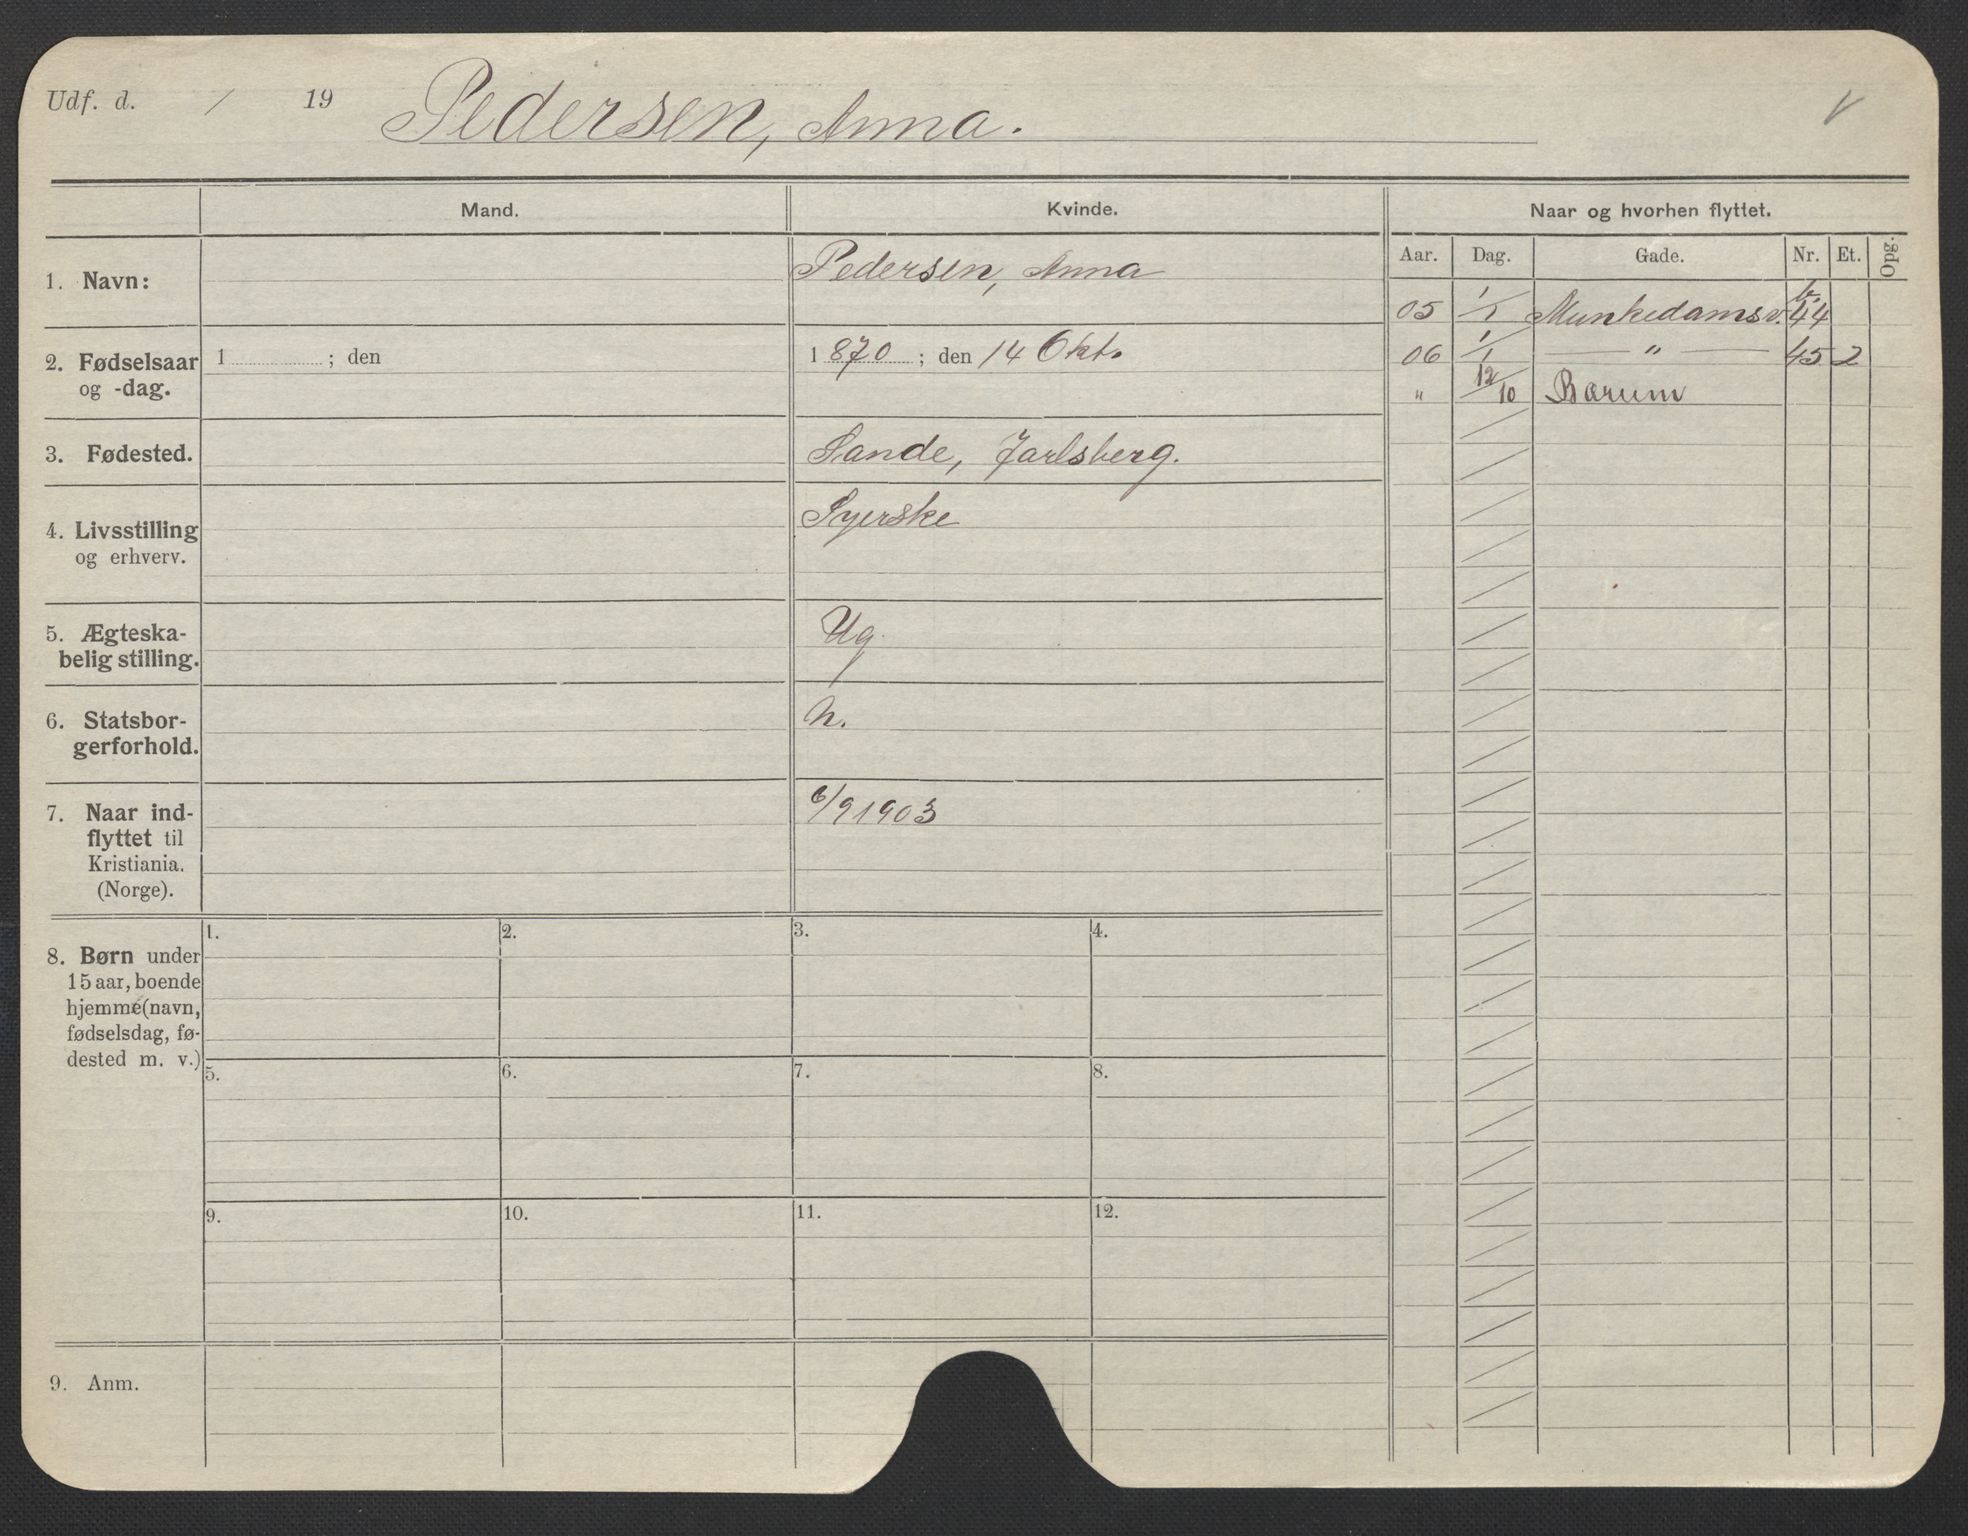 Udf. d. / 19 Pedersen, Anna.
Mand. Kvinde. Naar og hvorhen flyttet.
Aar. Dag. Gade. Nr. Et. Opg.
1. Navn: Pedersen, Anna
05 1/1 Munkedamsv. 44 b.
2. Fødselsaar og -dag. 1 ; den 1870 ; den 14 Okt.
06 1/1 — " — 45 2
" 12/10 Bærum
3. Fødested. Sande, Jarlsberg.
4. Livsstilling og erhverv. Syerske
5. Ægteska-
belig stilling. Ug.
6. Statsbor-
gerforhold. N.
7. Naar ind-
flyttet til
Kristiania.
(Norge). 6/9 1903
8. Børn under
15 aar, boende
hjemme (navn,
fødselsdag, fø-
dested m. v.)
1. 2. 3. 4.
5. 6. 7. 8.
9. 10. 11. 12.
9. Anm.